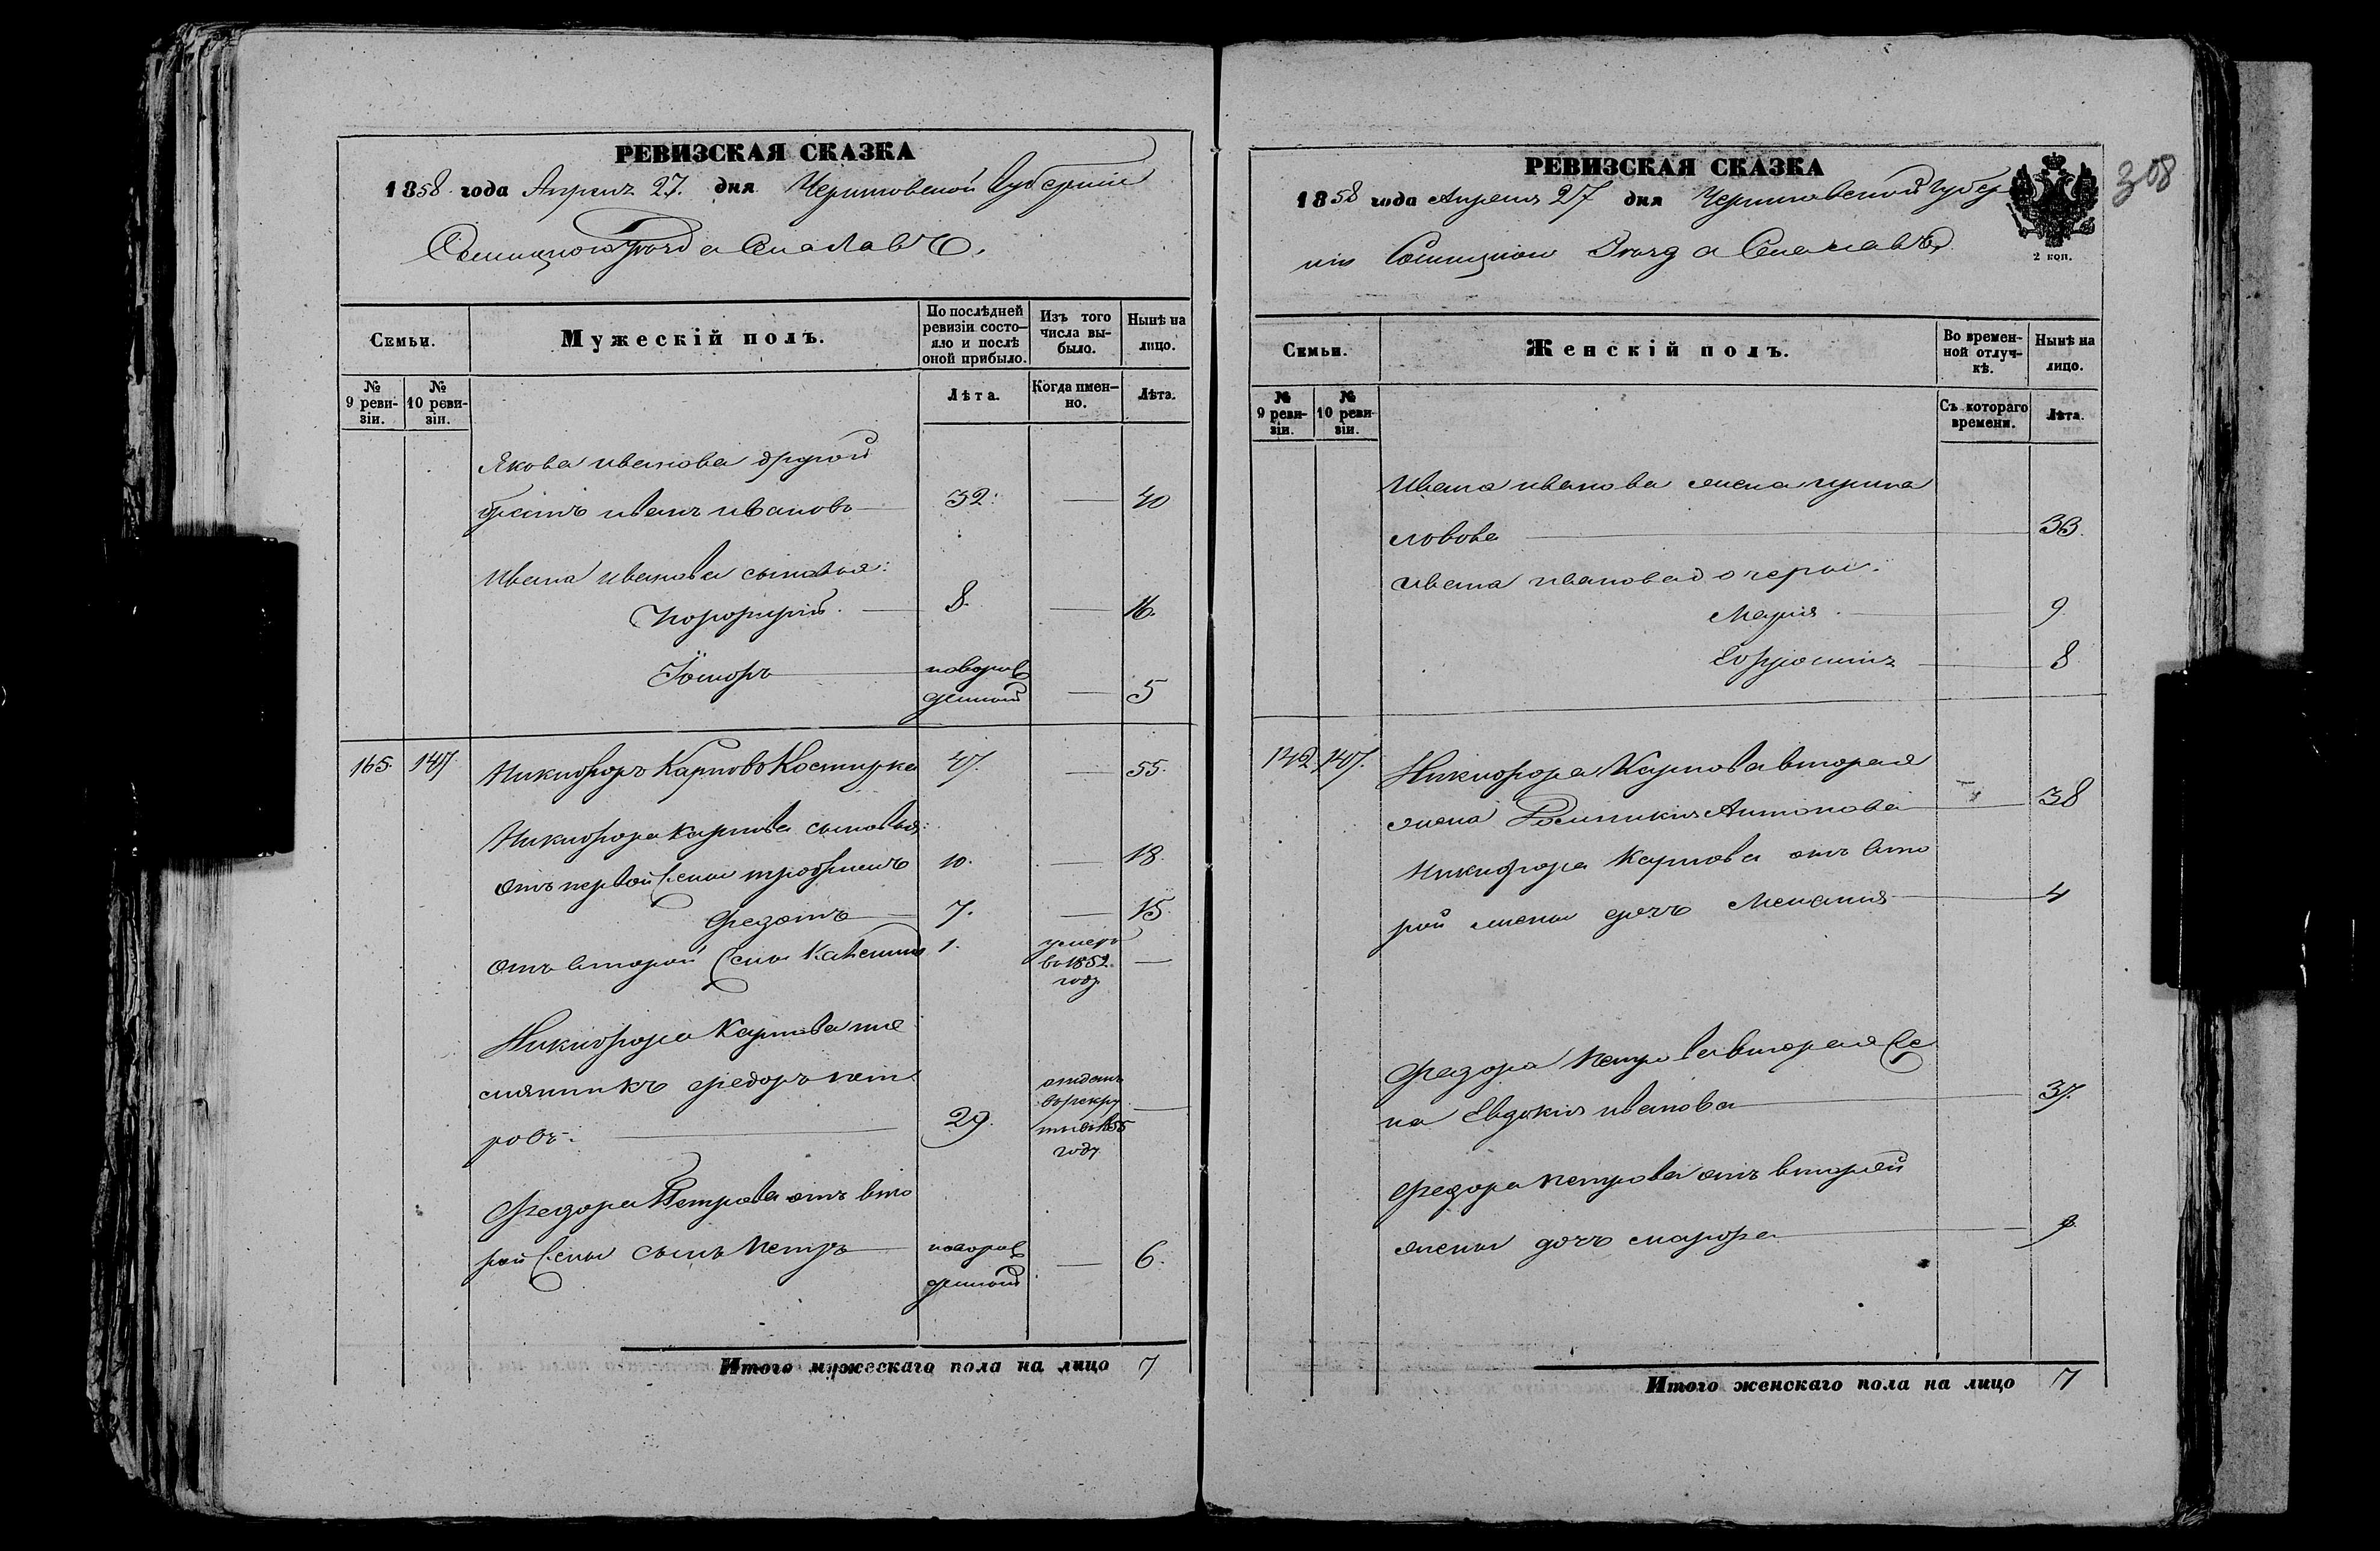 РЕВИЗСКАЯ СКАЗКА
1858 года Апреля 27. дня Черниговской Губерніи
Сосницкого Уезда
Семьи.
Мужескій полъ.
По послѣдней ревизіи состо-
яло и послѣ оной прибыло.
Изъ того числа вы-
было.
Нынѣ на лицо.
№ 9 реви-
зіи.
№ 10 реви-
зіи.
Лѣта.
Когда имен-
но.
Лѣта.
Якова иванова другой
братъ иванъ ивановъ 32. — 40
Ивана иванова сыновья:
Порфирій. 8. — 16.
новорож
денный — 5
165. 147 Никифоръ Карповъ Костирка 47. — 55.
Никифора Карпова сыновья:
отъ первой жены трофимъ 10. — 18.
Федотъ 7. — 15.
отъ второй жены 1. умеръ
въ 1852
году —
Никифора Карпова пле
мянникъ федоръ пет
ровъ. 29. отданъ
въ рекру
ты въ 1855
году —
Федора Петрова отъ вто
рой жены сынъ петръ новорож
денный — 6.
Итого мужескаго пола на лицо 7
РЕВИЗСКАЯ СКАЗКА
2 коп.
308
1858 года Апреля 27 дня Черниговской Губер
ніи Сосницкого Уезда
Семьи.
Женскій полъ.
Во времен-
ной отлуч-
кѣ.
Нынѣ на лицо.
№ 9 реви-
зіи.
№ 10 реви-
зіи.
Съ котораго времени.
Лѣта.
Ивана иванова жена ирина
33.
ивана иванова дочери:
Марія. 9.
8
142 147. Никифора Карпова вторая
жена Антонова 38
Никифора Карпова отъ вто
рой жены дочь Меланія 4
Федора петрова вторая же
на Евдокия иванова 37.
Федора петрова отъ второй
жены дочь
Итого женскаго пола на лицо 7